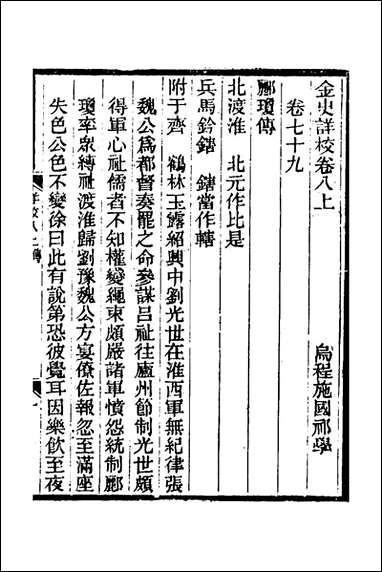 金史詳校卷八上
烏程施國祁學
卷七十九
酈瓊傳
北渡淮　北元作比是
兵馬鈐鎋　鎋當作轄
附于齊　鶴林玉露紹興中劉光世在淮西軍無紀律張
魏公爲都督奏罷之命參謀呂祉往廬州節制光世頗
得軍心祉儒者不知權變繩束頗嚴諸軍憤怨統制酈
瓊率衆縛祉渡淮歸劉豫魏公方宴僚佐報忽至滿座
失色公色不變徐曰此有說第恐彼覺耳因樂飲至夜